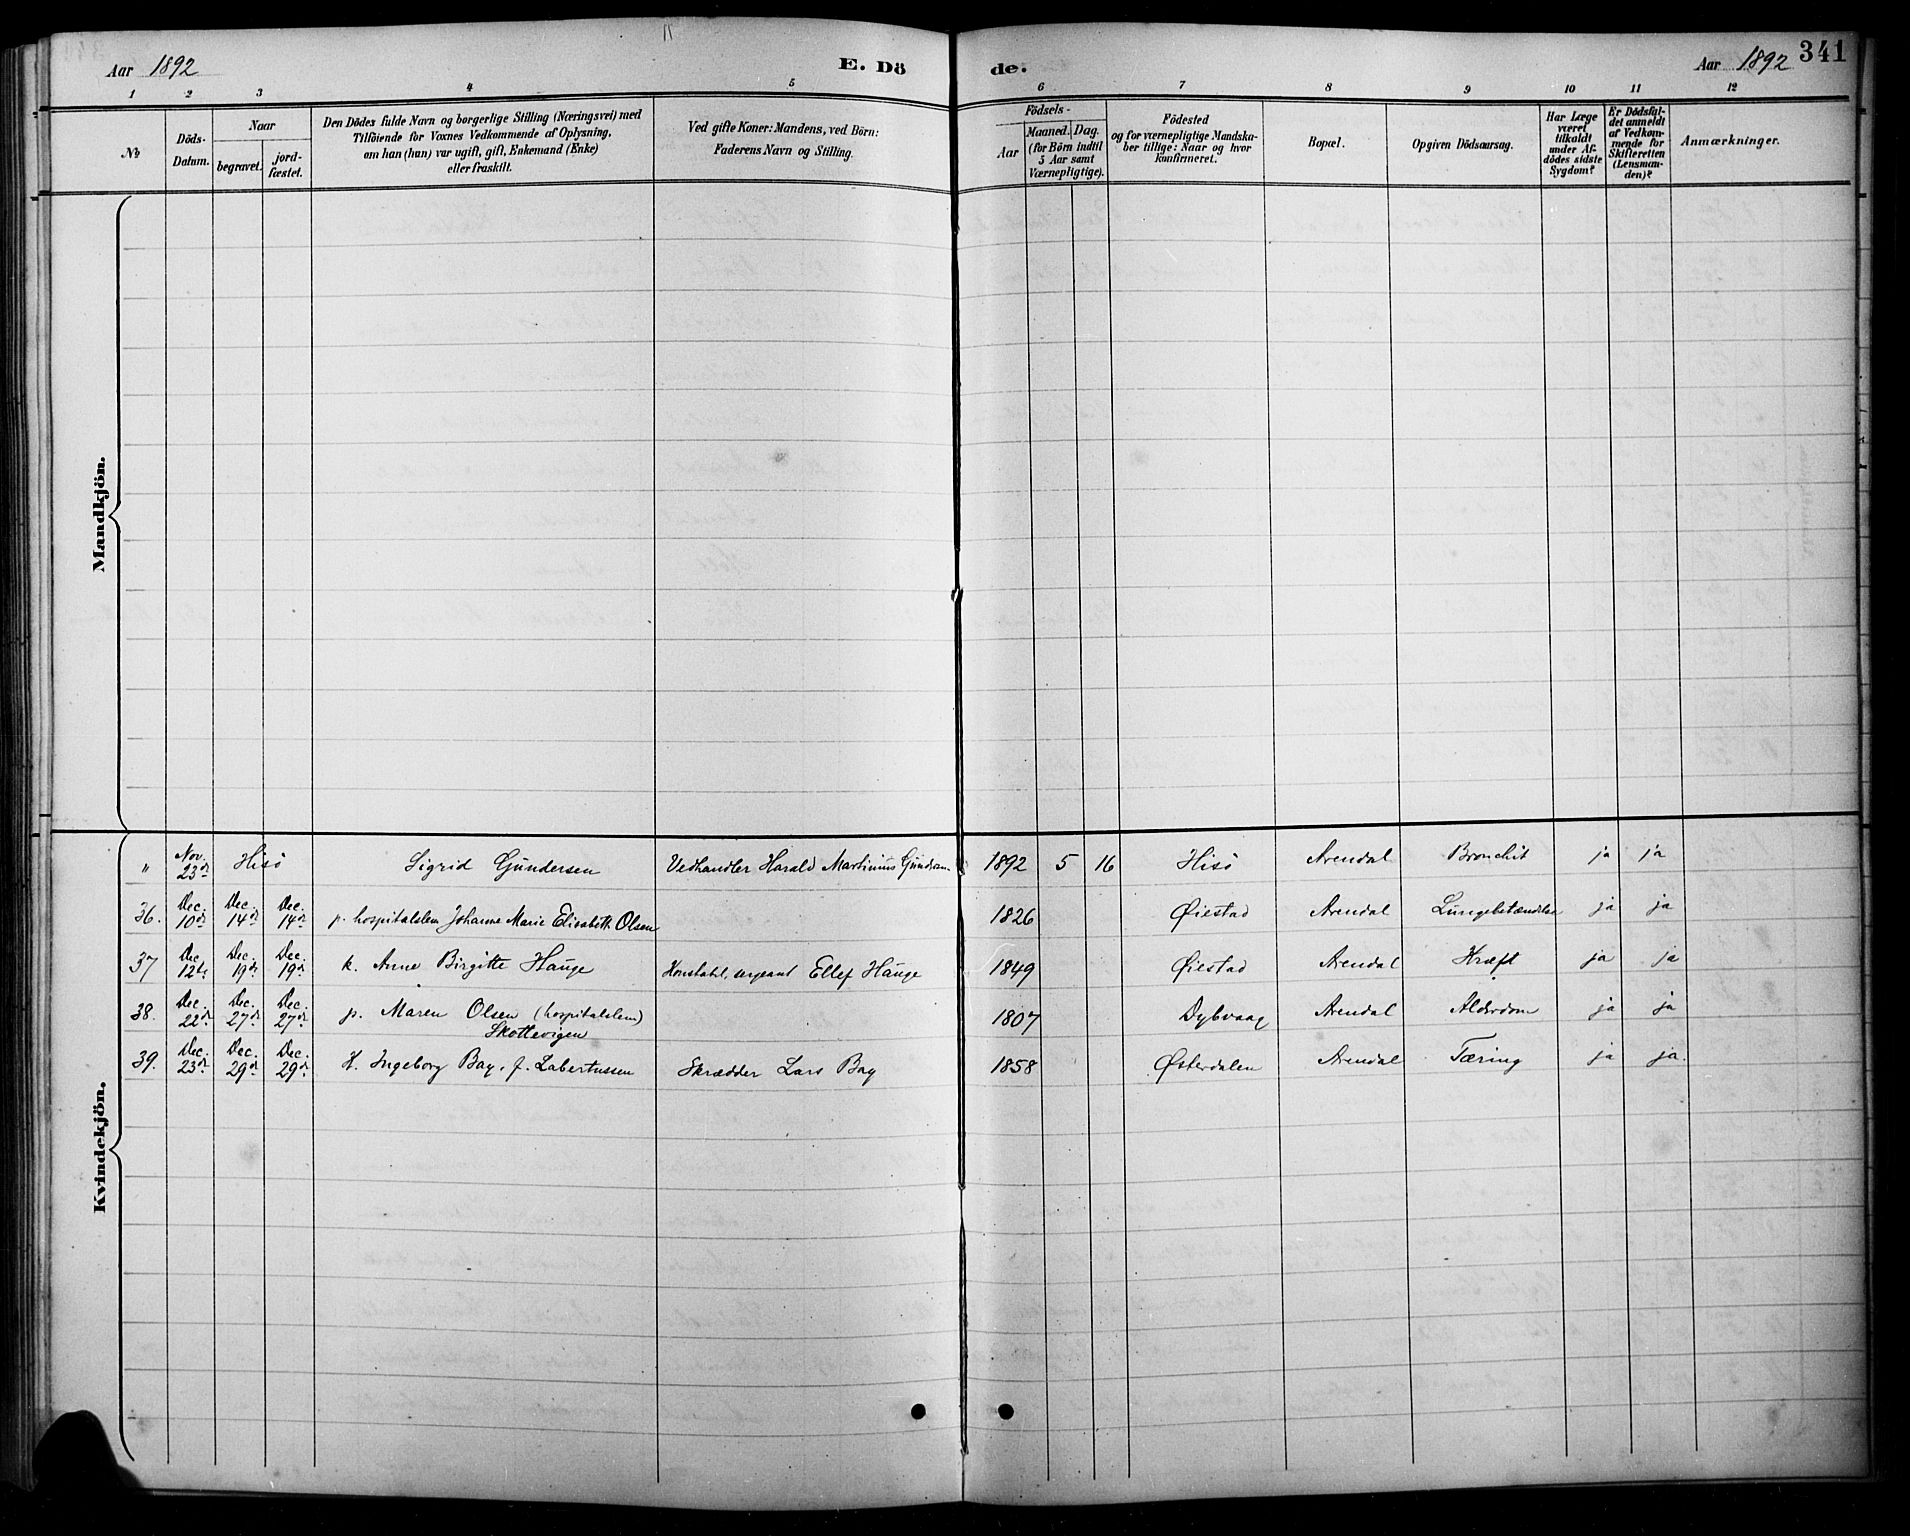 Aar 1892
E. Dö
de.
Aar 1892
341
1 2 3 4 5 6 7 8 9 10 11 12
№
Döds-
Datum.
Naar
begravet.
jord-
fæstet.
Den Dödes fulde Navn og borgerlige Stilling (Næringsvei) med
Tilföiende for Voxnes Vedkommende af Oplysning,
om han (hun) var ugift, gift, Enkemand (Enke)
eller fraskilt.
Ved gifte Koner: Mandens, ved Börn:
Faderens Navn og Stilling.
Födsels-
Aar
Maaned. Dag.
(for Börn indtil
5 Aar samt
Værnepligtige).
Födested
og for værnepligtige Mandska-
ber tillige: Naar og hvor
konfirmeret.
Bopæl.
Opgiven Dödsaarsag.
Har Læge
været
tilkaldt
under Af-
dödes sidste
Sygdom?
Er Dödsfal-
det anmeldt
af Vedkom-
mende for
Skifteretten
(Lensman-
den)?
Anmærkninger.
Mandkjön.
Kvindekjön.
" Nov. 23de Hisö Sigrid Gundersen Vedhandler Harald Martinius Gundersen 1892 5 16 Hisö Arendal Bronchit ja ja
36. Dec. 10de Dec. 14de Dec. 14de p. hospitalslem Johanne Marie Elisabeth Olsen 1826 Øiestad Arendal Lungebetændelse ja ja
37 Dec. 12te Dec. 19de Dec. 19de k. Anne Birgitte Hauge Konstabl. sergeant Ellef Hauge 1849 Øiestad Arendal Kræft ja ja
38. Dec. 22de Dec. 27de Dec. 27de p. Maren Olsen (hospitalslem) 1807 Dybvaag Arendal Alderdom ja ja
Skottevigen
39. Dec. 23de Dec. 29de Dec. 29de K. Ingeborg Bay, f. Labertussen Skrædder Lars Bay 1858 Østerdalen Arendal Tæring ja ja.